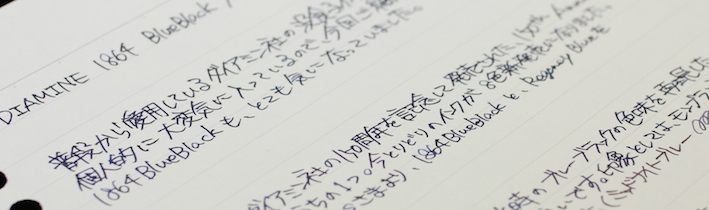 DIAMINE 1864 BlueBlack
普段から愛用しているダイアミン社の
個人的に大変気に入っているので、今回
1864 BlueBlackも、とても気になっていました。
ダイアミン社の150周年を記念して発売された、150th
ちの1つ。今とりどりのインクが8色新発売になりました。
さまより、1864 BlueBlackと、Regency Blueを
時のブルーブラックの色味を再現した
いです。印象としては、モンブラン
ミッドナイトブルー